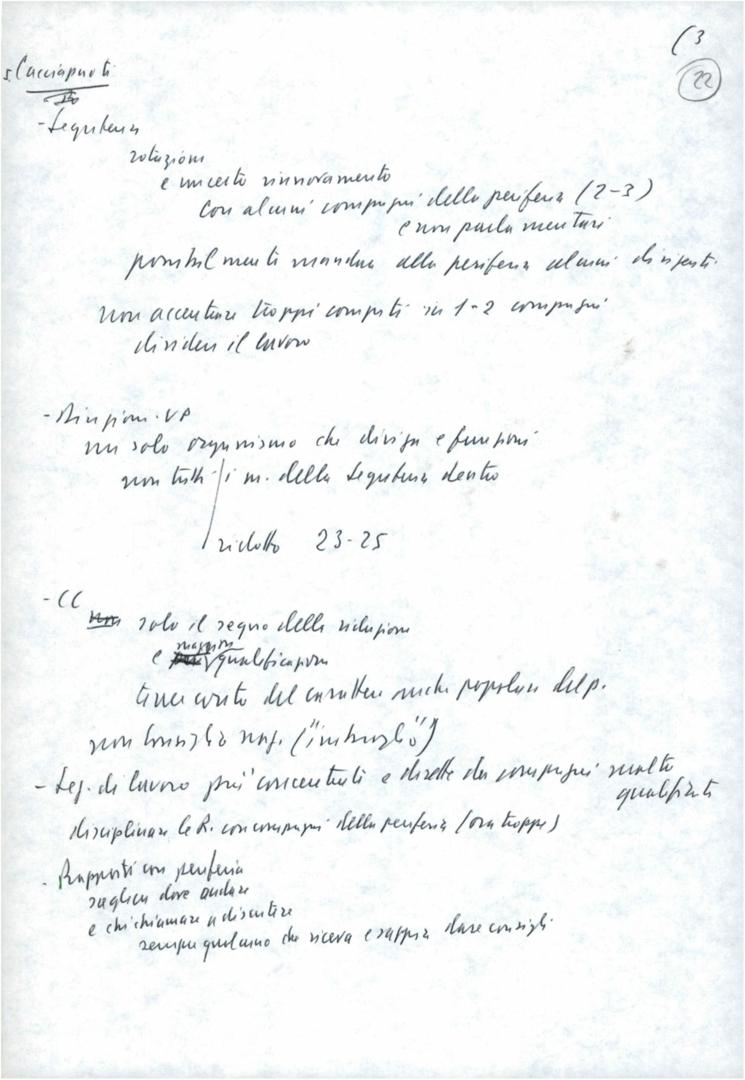 (3
22
5. Cacciapuoti
- Segreteria
rotazioni
e un certo rinnovamento
con alcuni compagni della periferia (2-3)
e non parlamentari
possibilmente mandare alla periferia alcuni di questi
non accentrare troppi compiti in 1-2 compagni
dividere il lavoro
- Direzione. VP
un solo organismo che divida e funzioni
non tutti i m. della Segreteria dentro
ridotto 23-25
- CC
solo il segno della riduzione
e maggiore qualificazione
tener conto del carattere anche popolare del p.
non Consiglio naz. ("imbroglio")
- Sez. di lavoro più concentrate e dirette da compagni molto
qualificati
disciplinare le R. con compagni della periferia (ora troppe)
- Rapporti con periferia
scegliere dove andare
e chi chiamare a discutere
sempre qualcuno che riceva e sappia dare consigli